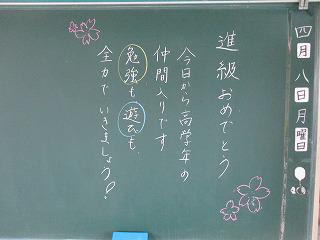 四月八日月曜日
進級おめでとう
今日から高学年の
仲間入りです
勉強も遊びも
全力でいきましょう！